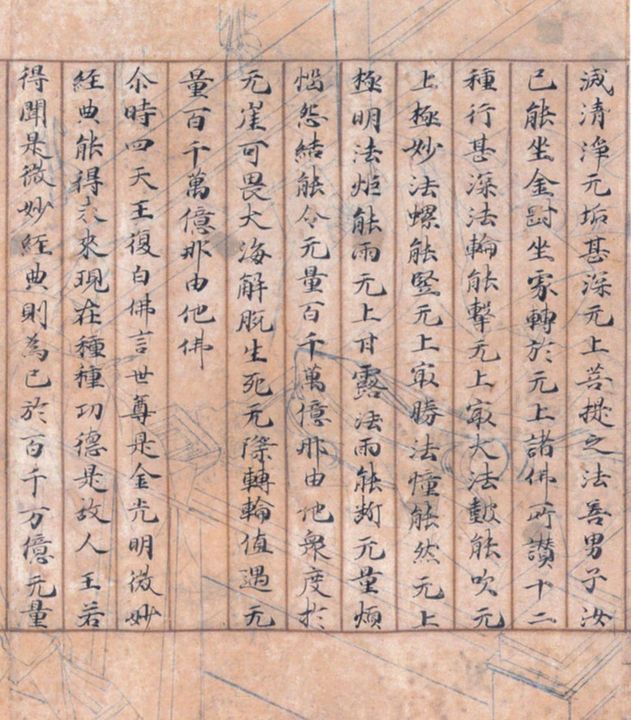 滅清淨无垢甚深无上菩提之法善男子汝
已能坐金剛坐處轉於无上諸佛所讚十二
種行甚深法輪能擊无上冣大法皷能吹无
上極妙法螺能竪无上冣勝法幢能然无上
極明法炬能雨无上甘露法雨能斷无量煩
惱怨結能令无量百千萬億那由他衆度於
无崖可畏大海解脫生死无際轉輪值遇无
量百千萬億那由他佛
尒時四天王復白佛言世尊是金光明微妙
經典能得未來現在種種功德是故人王若
得聞是微妙經典則為已於百千万億无量